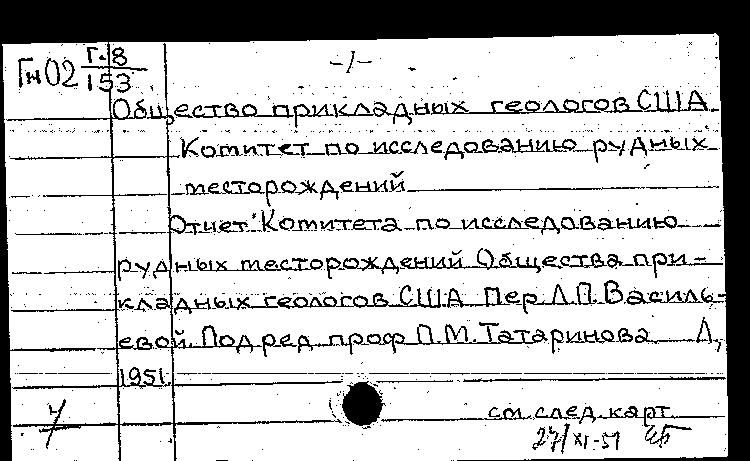 -1-
Гн02 Г-8
153
Общество прикладных геологов США
Комитет по исследованию рудных
месторождений
Отчет Комитета по исследованию
рудных месторождений Общества при-
кладных геологов США Пер Л.П. Василь-
евой. Под ред проф П.М. Татаринова Л,
1951.
см след. карт
27/XI-51